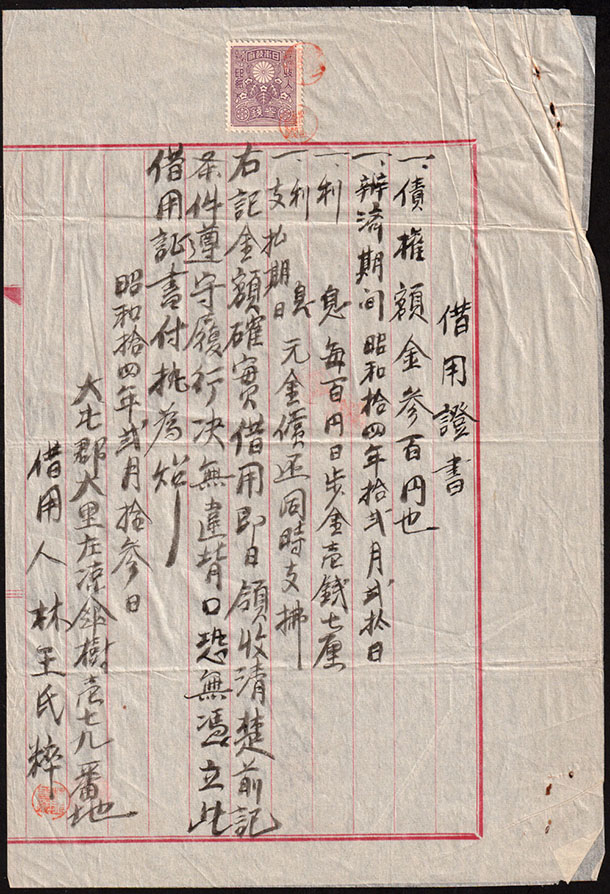 借用證書
一、債權額金參百円也
一、辨済期间昭和拾四年拾弍月弍拾日
一、利息每百円日步金壱錢七厘
一、利息支払期日元金償还同時支拂
右記金額確實借用即日領收清楚前記
条件遵守履行决無違背口恐無憑立此
借用証書付执為炤
昭和拾四年弍月拾參日
大屯郡大里庄涼傘樹壱七九番地
借用人林王氏粹